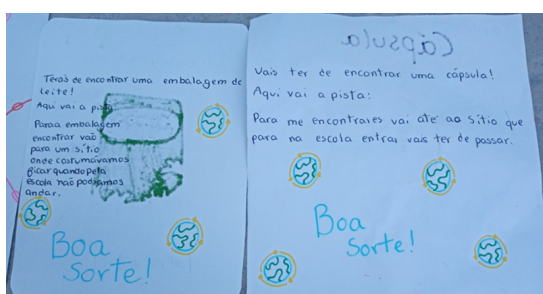 Terás de encontrar uma embalagem de
leite!
Aqui vai a pista:
Para a embalagem
encontrar vão
para um sítio
onde costumávamos
ficar quando pela
escola não podíamos
andar.
Boa
Sorte!
Cápsula
Vais ter de encontrar uma cápsula!
Aqui vai a pista:
Para me encontrares vai até ao sítio que
para na escola entrar vais ter de passar.
Boa
Sorte!